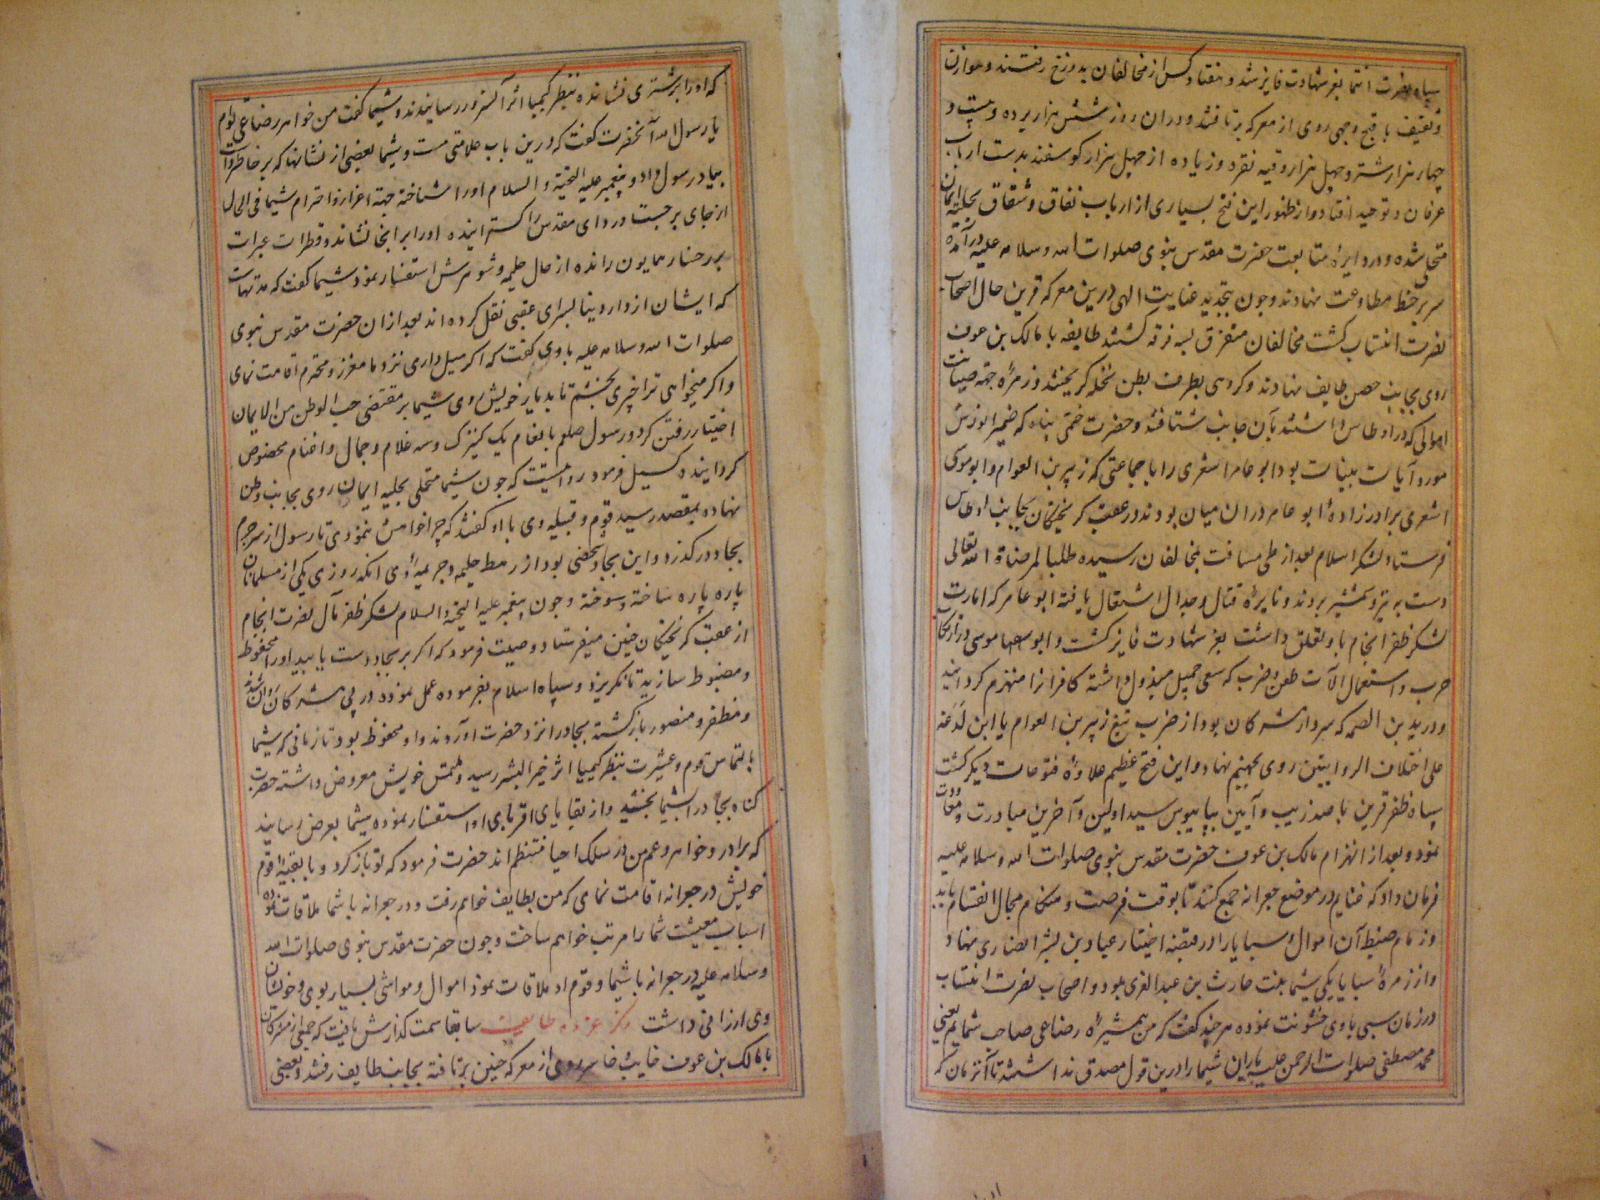 سپاه نصرت انتما بعز شهادت فایز شد و هفتاد کس از مخالفان بدوزخ رفتند و هوازن
و ثقیف باقبح وجهی روی از معرکه برتافتند و دران روز شش هزار برده و بیست و
چهار هزار شتر و چهل هزار وقیه نقره و زیاده از چهل هزار کوسفند بدست ارباب
عرفان و توحید افتاد و از ظهور این فتح بسیاری از ارباب نفاق و شقاق بحلیه ایمان
متحلی شده و در دایره متابعت حضرت مقدس نبوی صلوات الله و سلامه علیه درآمده
سر بر خط مطاوعت نهادند و چون بتجدید عنایت الهی درین معرکه قرین حال اصحاب
نصرت انتساب کشت مخالفان متفرق بسه فرقه کشتند طایفه با مالک بن عوف
روی بجانب حصن طایف نهادند و کروهی بطرف بطن نخله کریختند و زمره جهة صیانت
اموالی که در اوطاس داشتند بآن جانب شتافتند و حضرت ختمی پناه که ضمیر انورش
مورد آیات بینات بود ابو عامر اشعری را با جماعتی که زبیر بن العوام و ابو موسی
اشعری برادرزادهٔ ابو عامر دران میان بودند در عقب کریختکان بجانب اوطاس
فرستاد و لشکر اسلام بعد از طی مسافت بمخالفان رسیده طلبا لمرضاة الله تعالی
دست به تیر و شمشیر بردند و نایره قتال و جدال اشتعال یافته ابو عامر که امارت
لشکر ظفر انجام باو تعلق داشت بعز شهادت فایز کشت و ابو موسی در ارتکاب
حرب و استعمال آلات طعن و ضرب که سعی جمیل مبذول داشته کافرانرا منهزم کردانید
و درید بن الصمه که سردار مشرکان بود از ضرب تیغ زبیر بن العوام یا ابن لدغه
علی اختلاف الروایتین روی بجهنم نهاد و این فتح عظیم علاوه فتوحات دیکر کشت
سپاه ظفر قرین با صد زیب و آیین بپابوس سید اولین و آخرین مبادرت و معاودت
نمود و بعد از انهزام مالک بن عوف حضرت مقدس نبوی صلوات الله و سلامه علیه
فرمان داد که غنایم در موضع جعرانه جمع کنند تا بوقت فرصت و هنکام مجال انقسام یابد
و زمام ضبط آن اموال و سبایا را در قبضه اختیار عباد بن بشر انصاری نهاد
و از زمرهٔ سبایا یکی شیما بنت حارث بن عبد العزی بود و اصحاب نصرت انتساب
در زمان سبی با وی خشونت نموده هر چند کفت که من همشیره رضاعی صاحب شمایم یعنی
محمد مصطفی صلوات الرحمن علیه یاران شیما را درین قول مصدق نداشتند تا آنزمان که
که او را بر شتری نشانده بنظر کیمیا اثر آنسرور رسانیدند و شیما کفت من خواهر رضاعی توام
یا رسول الله آنحضرت کفت که درین باب علامتی هست و شیما بعضی از نشانها که بر خاطر داشت
بیاد رسول داد و پیغمبر علیه التحیة و السلام او را شناخته جهة اعزاز و احترام شیما فی الحال
از جای برجست و ردای مقدس را کسترانیده او را بر انجا نشاند و قطرات عبرات
بر رخسار همایون رانده از حال حلیمه و شوهرش استفسار نمود شیما کفت که مدتهاست
که ایشان از دار دنیا بسرای عقبی نقل کرده اند بعد ازان حضرت مقدس نبوی
صلوات الله و سلامه علیه با وی کفت که اکر میل داری نزد ما معزز و محترم اقامت نمای
و اکر میخواهی ترا چیزی بخشم تا بدیار خویش روی شیما بر مقتضی حب الوطن من الایمان
اختیار رفتن کرد و رسول صلعم بانعام یک کنیزک و سه غلام و جمال و اغنام مخصوص
کردانیده کسیل فرمود روایتست که چون شیما متحلی بحلیه ایمان روی بجانب وطن
نهاده بمقصد رسید قوم و قبیله وی با او کفتند که چرا خواهش ننمودی تا رسول از سر جرم
بجاد درکذرد و این بجاد شخصی بود از رهط حلیمه و جریمه وی انکه روزی یکی از مسلمانان
پاره پاره ساخته و سوخته و چون پیغمبر علیه التحیة و السلام لشکر ظفر مآل نصرت انجام
از عقب کریختکان حنین میفرستاد وصیت فرمود که اکر بر بجاد دست یابید او را محفوظ
و مضبوط سازید تا نکریزد و سپاه اسلام بفرموده عمل نموده در پی مشرکان روان شدند
و مظفر و منصور بازکشته بجاد را نزد حضرت آوردند و او محفوظ بود تا زمانی که شیما
بالتماس قوم و عشیرت بنظر کیمیا اثر خیر البشر رسید و ملتمس خویش معروض داشته حضرت
کناه بجاد را بشیما بخشید و از بقایای اقربای او استفسار نموده شیما بعرض رسانید
که برادر و خواهر و عم من در سلک احیا منتظم اند حضرت فرمود که تو باز کرد و با بقیه قوم
خویش در جعرانه اقامت نمای که من بطایف خواهم رفت و در جعرانه با شما ملاقات نموده
اسباب معیشت شما را مرتب خواهم ساخت و چون حضرت مقدس نبوی صلوات الله
و سلامه علیه در جعرانه با شیما و قوم او ملاقات نمود اموال و مواشی بسیار بوی و خویشان
وی ارزانی داشت ذکر غزوه طایف سابقا سمت کذارش یافت که جمعی از مشرکان
با مالک بن عوف خایب و خاسر روی از معرکه حنین برتافته بجانب طایف رفتند و بعضی